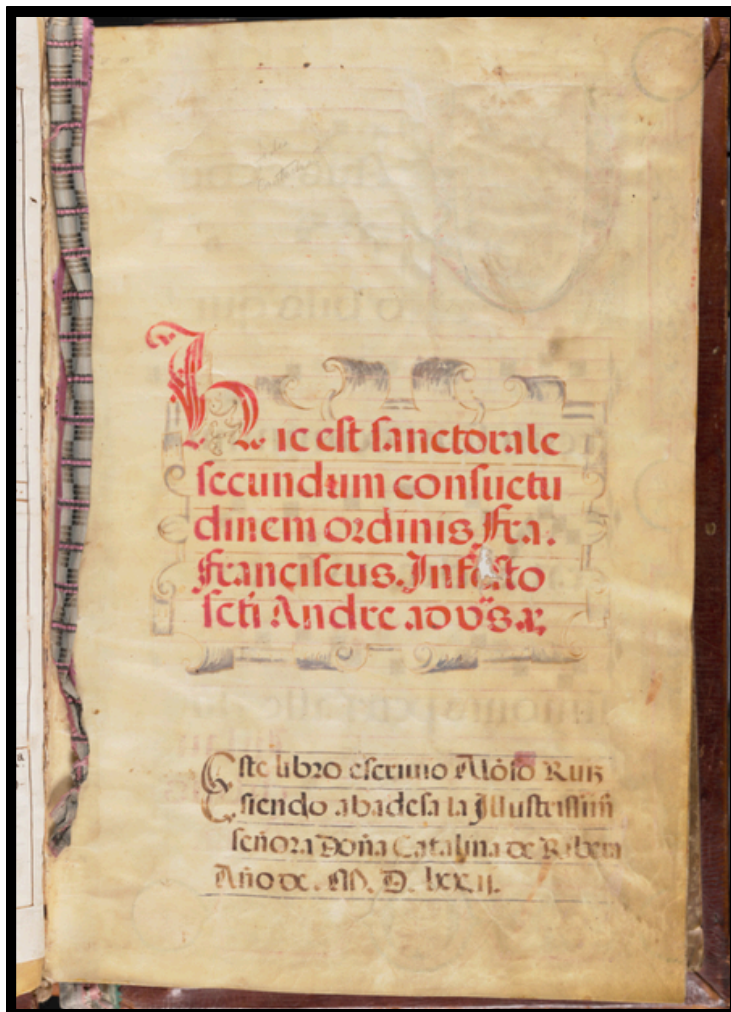 Hic est sanctorale
secundum consuetu
dinem ordinis Fra.
Franciscus. In festo
scti Andree ad vs̄as
Este libro escriuio Alōso Ruiz
siendo abadesa la Illustrissim̄
señora Doña Catalina de Ribera
Año de . M. D. lxx ij.